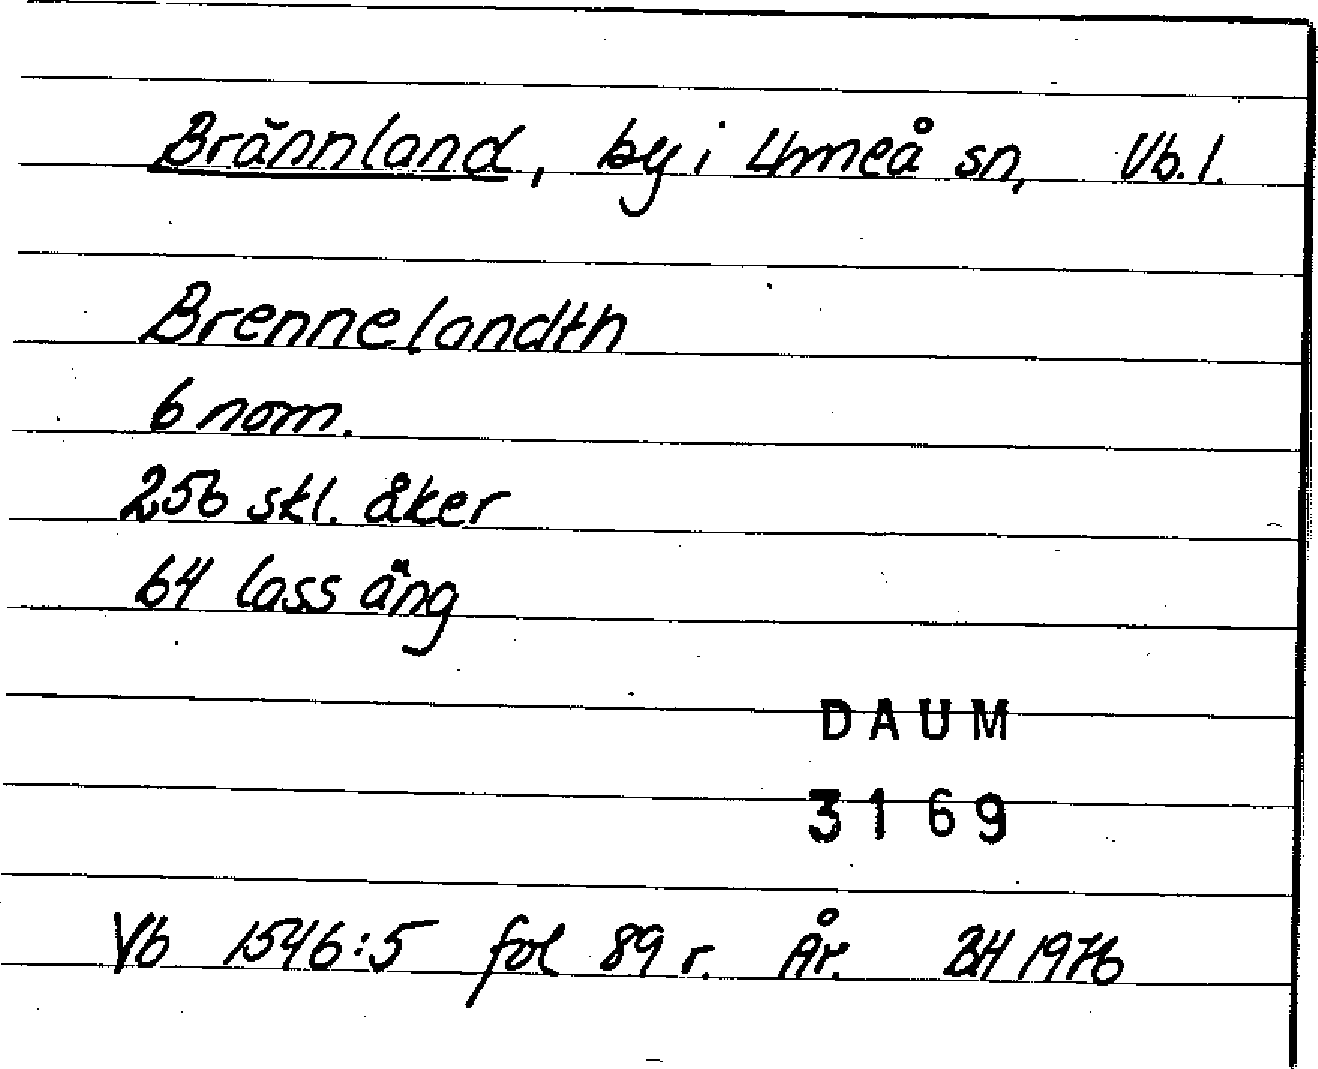 Brännland, by i Umeå sn, Vb. l.
Brennelandth
6 nom.
256 skl. åker
64 lass äng
DAUM
3169
Vb 1546:5 fol 89 r. År. BH 1976